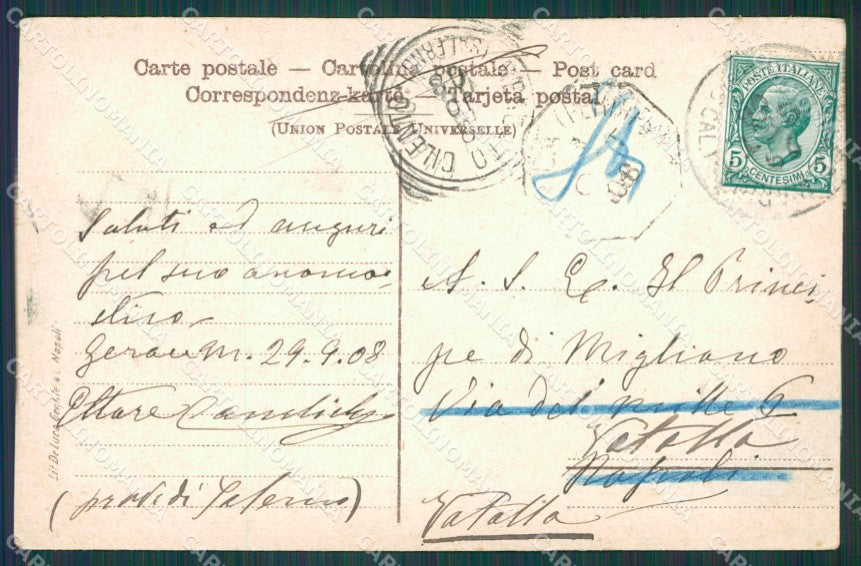 Carte postale — Cartolina postale — Post card
Correspondenz-karte — Tarjeta postal
(UNION POSTALE UNIVERSELLE)
POSTE ITALIANE
5 5
CENTESIMI
CILENTO
Saluti ed auguri
pel suo onoma-
stico
29.9.08
Ettore
(prov. di Salerno)
A. S. E. Il Princi-
pe di Migliano
Via dei mille 6
Vatolla
Napoli
Vatolla
CARTOLINOMANIA